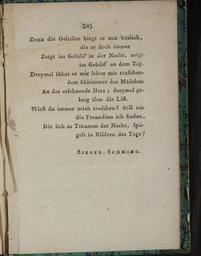 305
Denn die Geliebte birgt er mir böslich,
die er doch immer
Zeigt im Gebild' in der Nacht, zeigt
im Gebild' an dem Tag.
Dreymal führt er mir schon mit täuschen-
dem Schimmer das Mädchen
An das erseHnende Herz; dreymal ge-
lang ihm die List.
Wirst du immer mich täuschen? Soll nie
die Freundinn ich finden,
Die sich in Träumen der Nacht, spie-
gelt in Bildern des Tags?
Sieger. Schmidt.